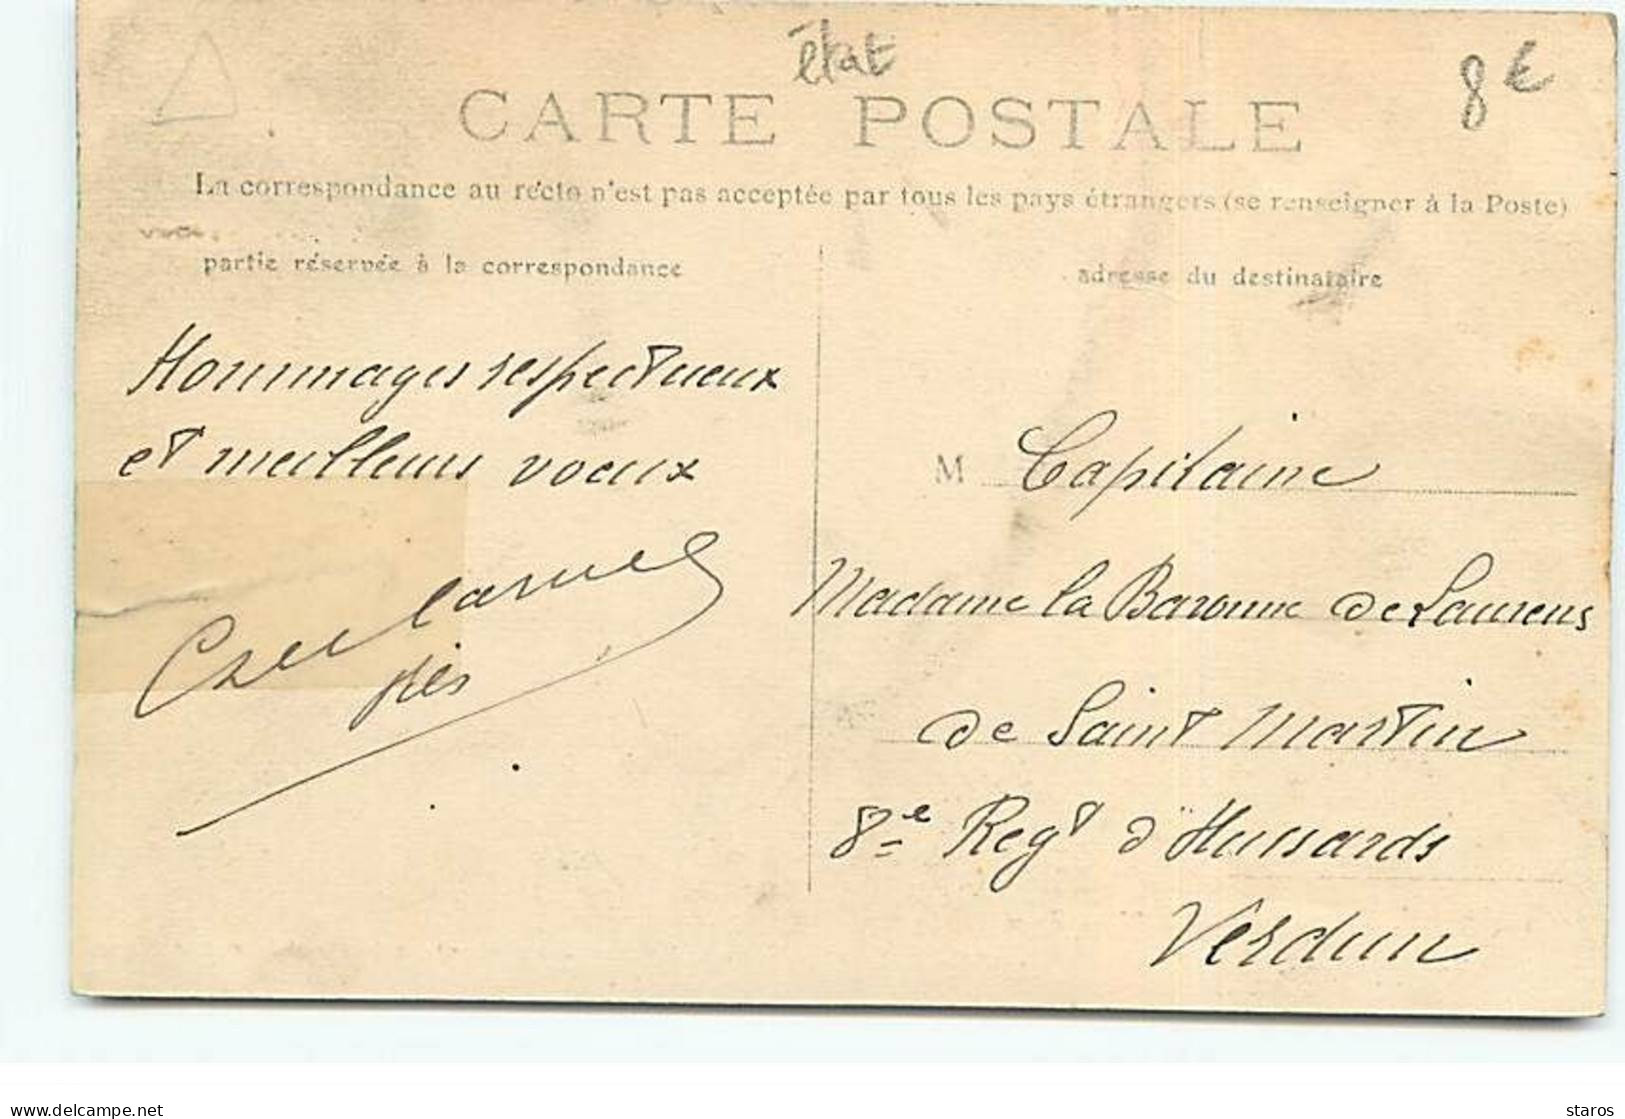 état
8 €
CARTE POSTALE
La correspondance au recto n'est pas acceptée par tous les pays étrangers (se renseigner à la Poste)
partie réservée à la correspondance
adresse du destinataire
Hommages respectueux
et meilleurs voeux
M Capitaine
Madame la Baronne de Laurens
de Saint Martin
8e Regt d'Hussards
Verdun
www.delcampe.net
staros